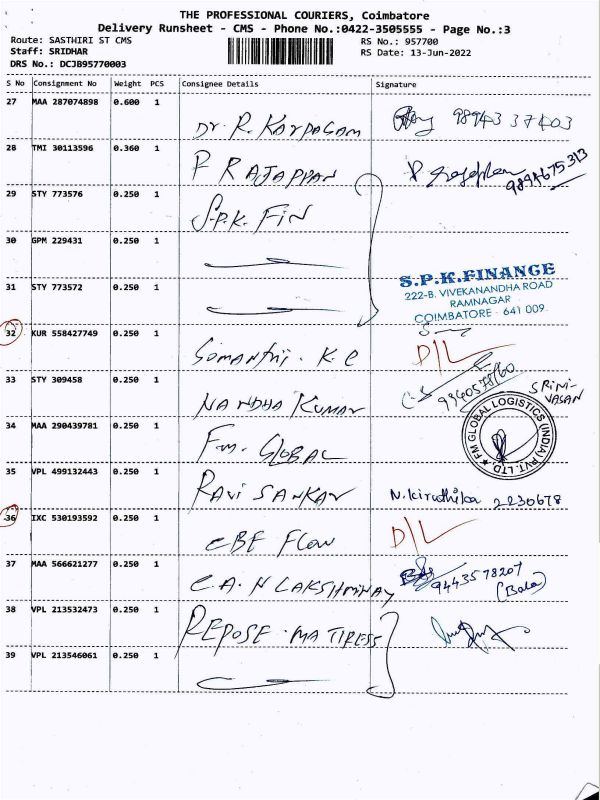 THE PROFESSIONAL COURIERS, Coimbatore
Delivery Runsheet - CMS - Phone No.:0422-3505555 - Page No.:3
Route: SASTHIRI ST CMS
RS No.: 957700
Staff: SRIDHAR
RS Date: 13-Jun-2022
DRS No.: DCJB95770003
S No Consignment No Weight PCS Consignee Details Signature
27 MAA 287074898 0.600 1
Dr. R. Karpagam 98943 37403
28 TMI 30113596 0.360 1
P RAJAPPAN 9894675313
29 STY 773576 0.250 1
S.P.K. FIN
30 GPM 229431 0.250 1
31 STY 773572 0.250 1
S.P.K.FINANCE
222-B, VIVEKANANDHA ROAD
RAMNAGAR
COIMBATORE - 641 009.
32 KUR 558427749 0.250 1
Somanthi. K.C D/L
33 STY 309458 0.250 1
NANDHA KUMAR
SRINI-
VASAN
34 MAA 290439781 0.250 1
Fm. GLOBAL
FM GLOBAL LOGISTICS (INDIA) PVT. LTD.
35 VPL 499132443 0.250 1
RAVI SANKAR N.Kiruthika 2230678
36 IXC 530193592 0.250 1
CBE Flow D/L
37 MAA 566621277 0.250 1
C.A. N LAKSHMINAY 9443578207
(Bala)
38 VPL 213532473 0.250 1
REPOSE. MATIRESS
39 VPL 213546061 0.250 1